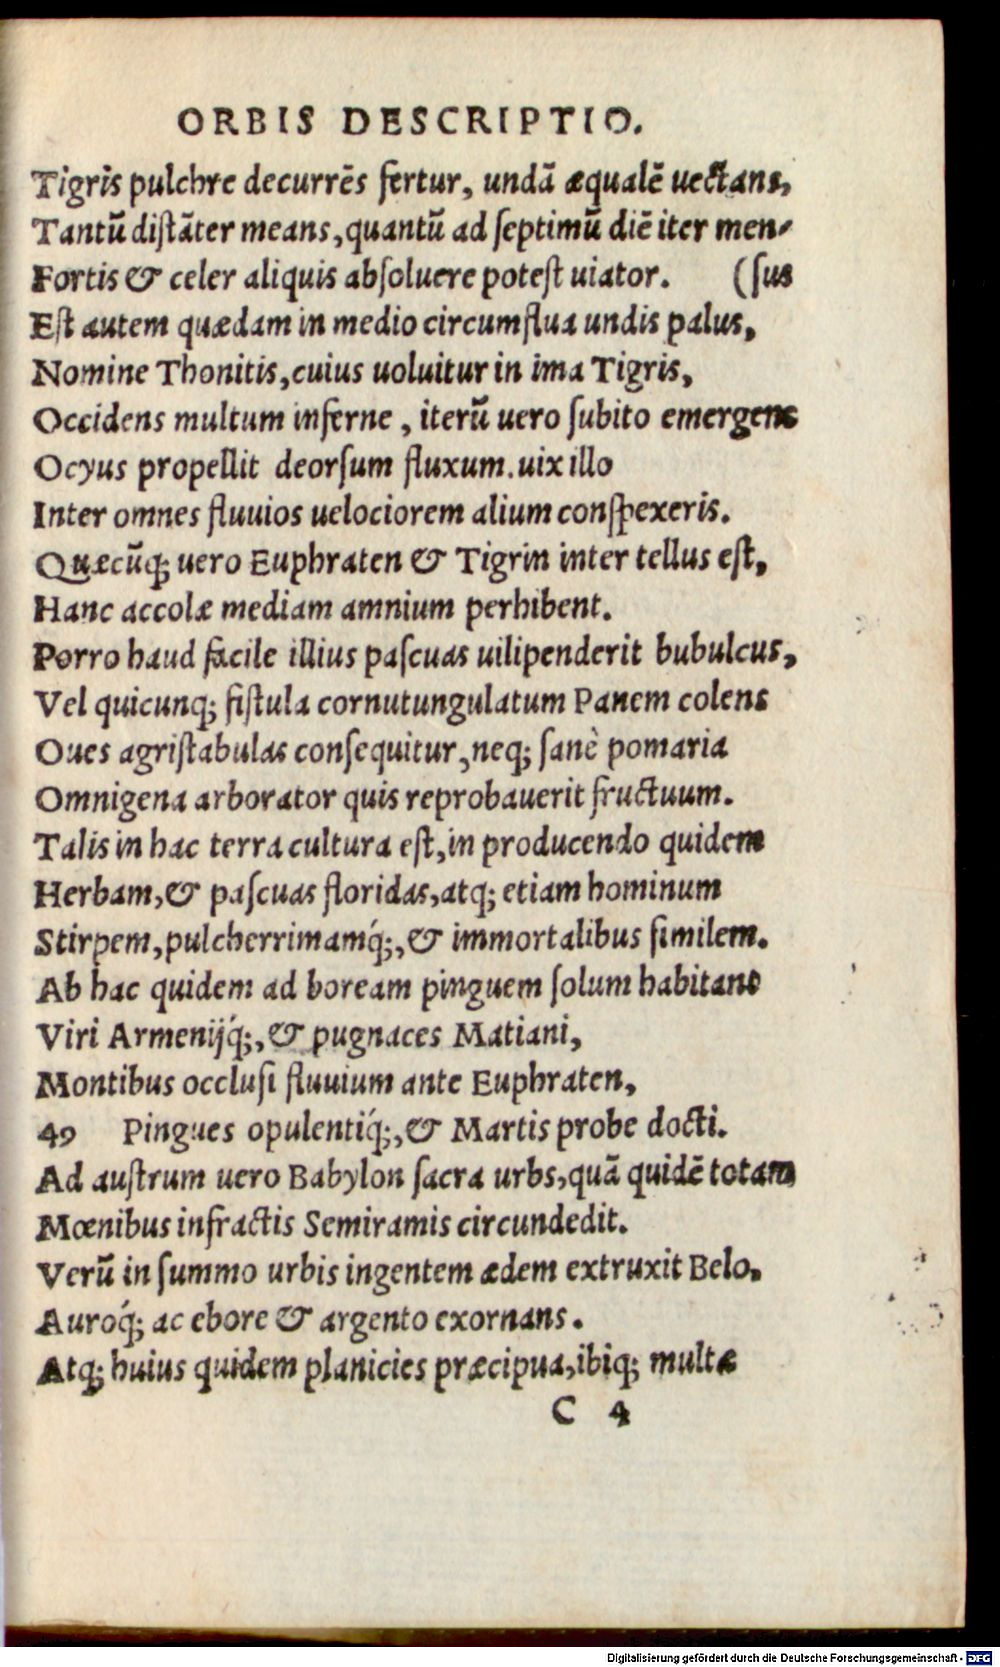 ORBIS DESCRIPTIO.
Tigris pulchre decurrēs fertur, undā æqualē uectans,
Tantū distāter means, quantū ad septimū diē iter men-
Fortis & celer aliquis absoluere potest uiator. (sus
Est autem quædam in medio circumflua undis palus,
Nomine Thonitis, cuius uoluitur in ima Tigris,
Occidens multum inferne, iterū uero subito emergens
Ocyus propellit deorsum fluxum. uix illo
Inter omnes fluuios uelociorem alium conspexeris.
Quæcūq; uero Euphraten & Tigrin inter tellus est,
Hanc accolæ mediam amnium perhibent.
Porro haud facile illius pascuas uilipenderit bubulcus,
Vel quicunq; fistula cornutungulatum Panem colens
Oues agristabulas consequitur, neq; sanè pomaria
Omnigena arborator quis reprobauerit fructuum.
Talis in hac terra cultura est, in producendo quidem
Herbam, & pascuas floridas, atq; etiam hominum
Stirpem, pulcherrimamq́;, & immortalibus similem.
Ab hac quidem ad boream pinguem solum habitant
Viri Armenijq́;, & pugnaces Matiani,
Montibus occlusi fluuium ante Euphraten,
49 Pingues opulentiq́;, & Martis probe docti.
Ad austrum uero Babylon sacra urbs, quā quidē totam
Mœnibus infractis Semiramis circundedit.
Verū in summo urbis ingentem ædem extruxit Belo,
Auroq́; ac ebore & argento exornans.
Atq; huius quidem planicies præcipua, ibiq; multæ
C 4
Digitalisierung gefördert durch die Deutsche Forschungsgemeinschaft - DFG